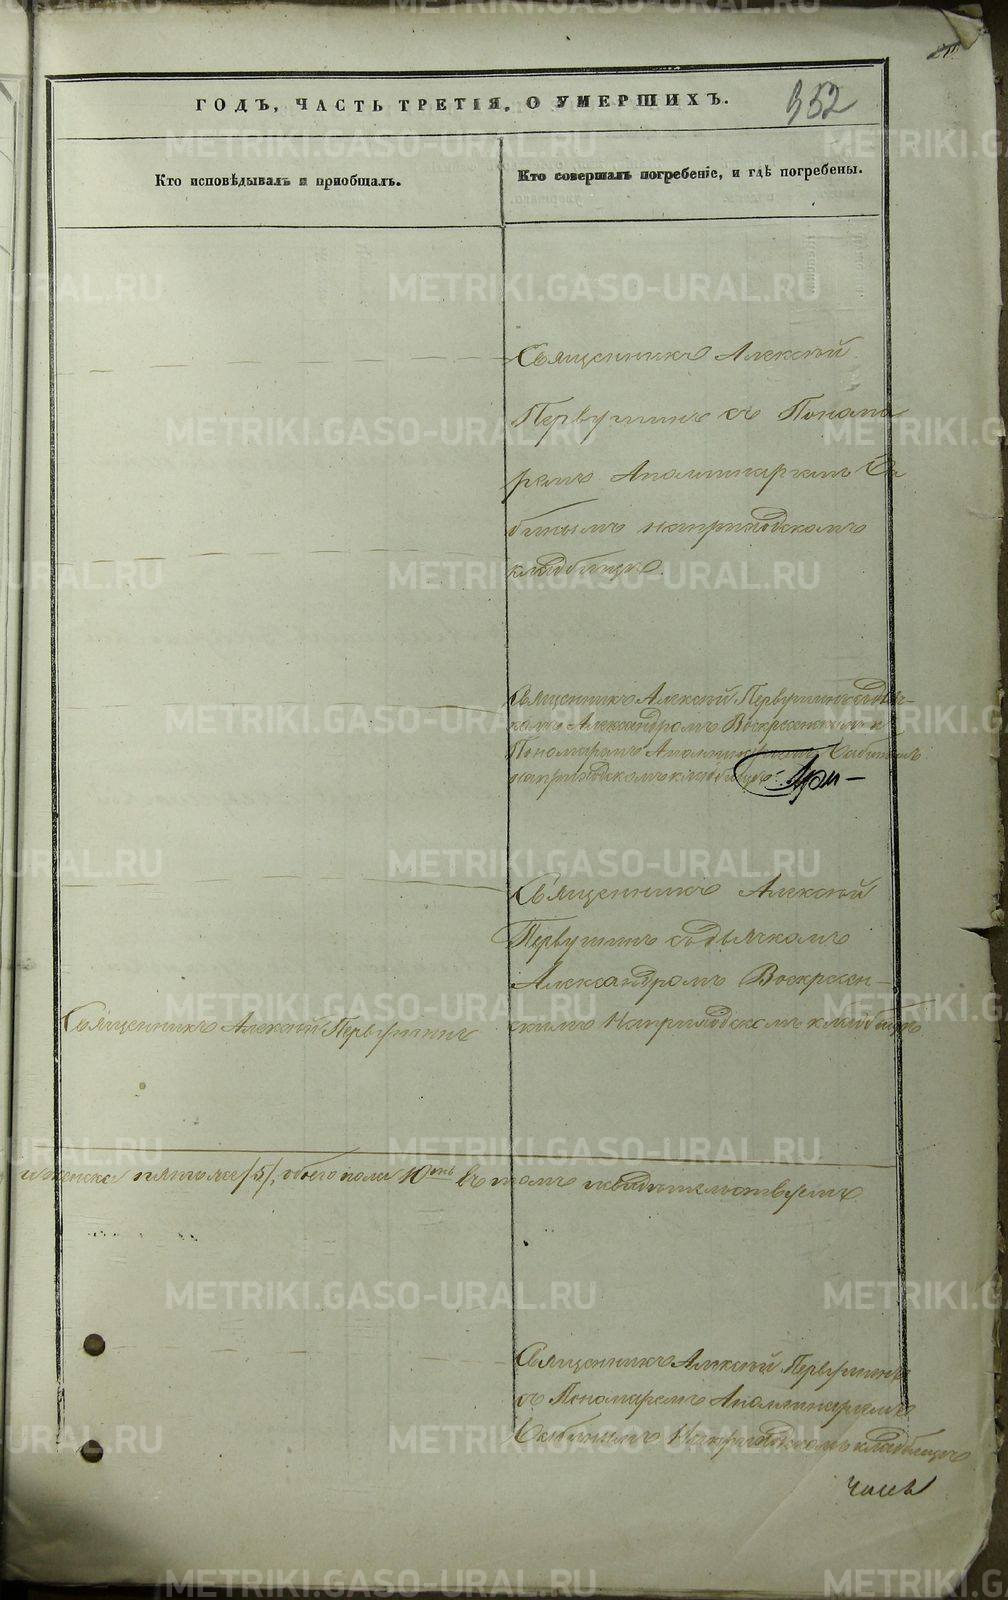 352
ГОДЪ, ЧАСТЬ ТРЕТІЯ, О УМЕРШИХЪ.
Кто исповѣдывалъ и пріобщалъ.
Кто совершалъ погребеніе, и гдѣ погребены.
Священникъ Алексѣй
Первушинъ съ Понома
ремъ Аполинаріемъ Са
бинымъ наприходскомъ
кладбищѣ.
Священникъ Алексѣй Первушинъ съ дьяч-
комъ Александромъ Воскресенскимъ и
Пономаремъ Аполинаріемъ Сабинымъ
наприходскомъ кладбищѣ.
Священникъ Алексѣй
Первушинъ съ дьячкомъ
Александромъ Воскресен-
скимъ Наприходскомъ кладбищѣ
Священникъ Алексѣй Первушинъ
и женска пятеро /5/, обоего пола 10ть въ томъ свидѣтельствуемъ
Священникъ Алексѣй Первушинъ
съ Пономаремъ Аполлинаріемъ
Сабинымъ Наприходскомъ кладбищѣ
METRIKI.GASO-URAL.RU